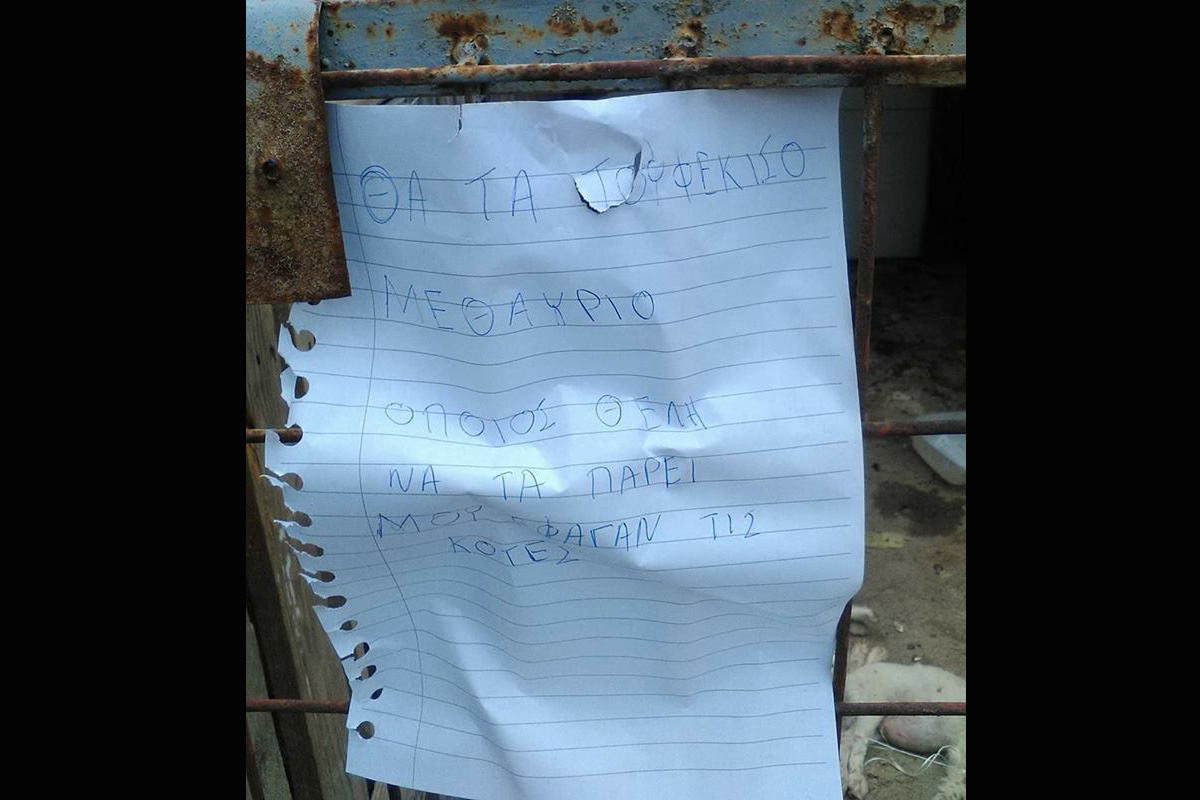 ΘΑ ΤΑ ΤΟΥΦΕΚΙΣΟ
ΜΕΘΑΥΡΙΟ
ΟΠΟΙΟΣ ΘΕΛΗ
ΝΑ ΤΑ ΠΑΡΕΙ
ΜΟΥ ΦΑΓΑΝ ΤΙΣ
ΚΟΤΕΣ